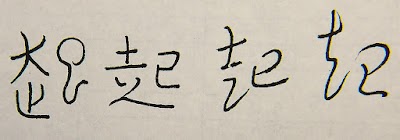 起起起起